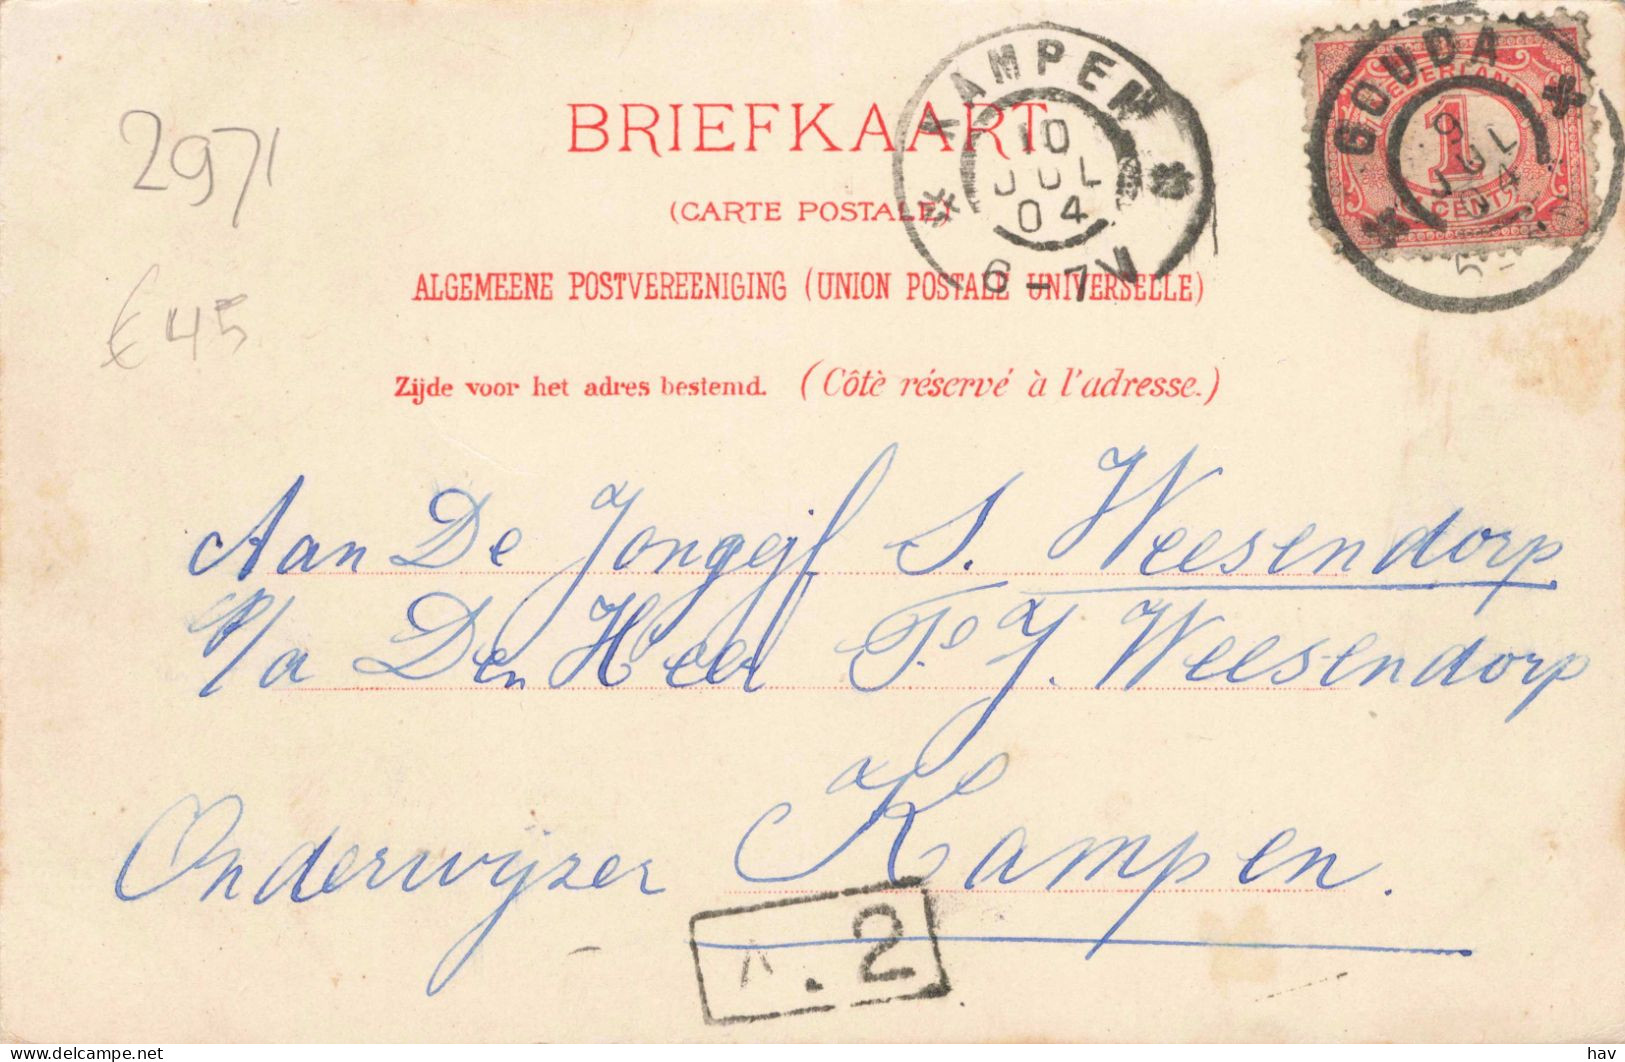 2971
€ 45
BRIEFKAART
(CARTE POSTALE)
ALGEMEENE POSTVEREENIGING (UNION POSTALE UNIVERSELLE)
Zijde voor het adres bestemd. (Côtè réservé à l'adresse.)
KAMPEN
10
JUL
04
6-7V
GOUDA
9
JUL
04
5-
NEDERLAND
1
CENT
Aan De Jongejf S. Weesendorp
P/a Den Heer Ts J. Weesendorp
Onderwijzer Kampen.
A.2
hav